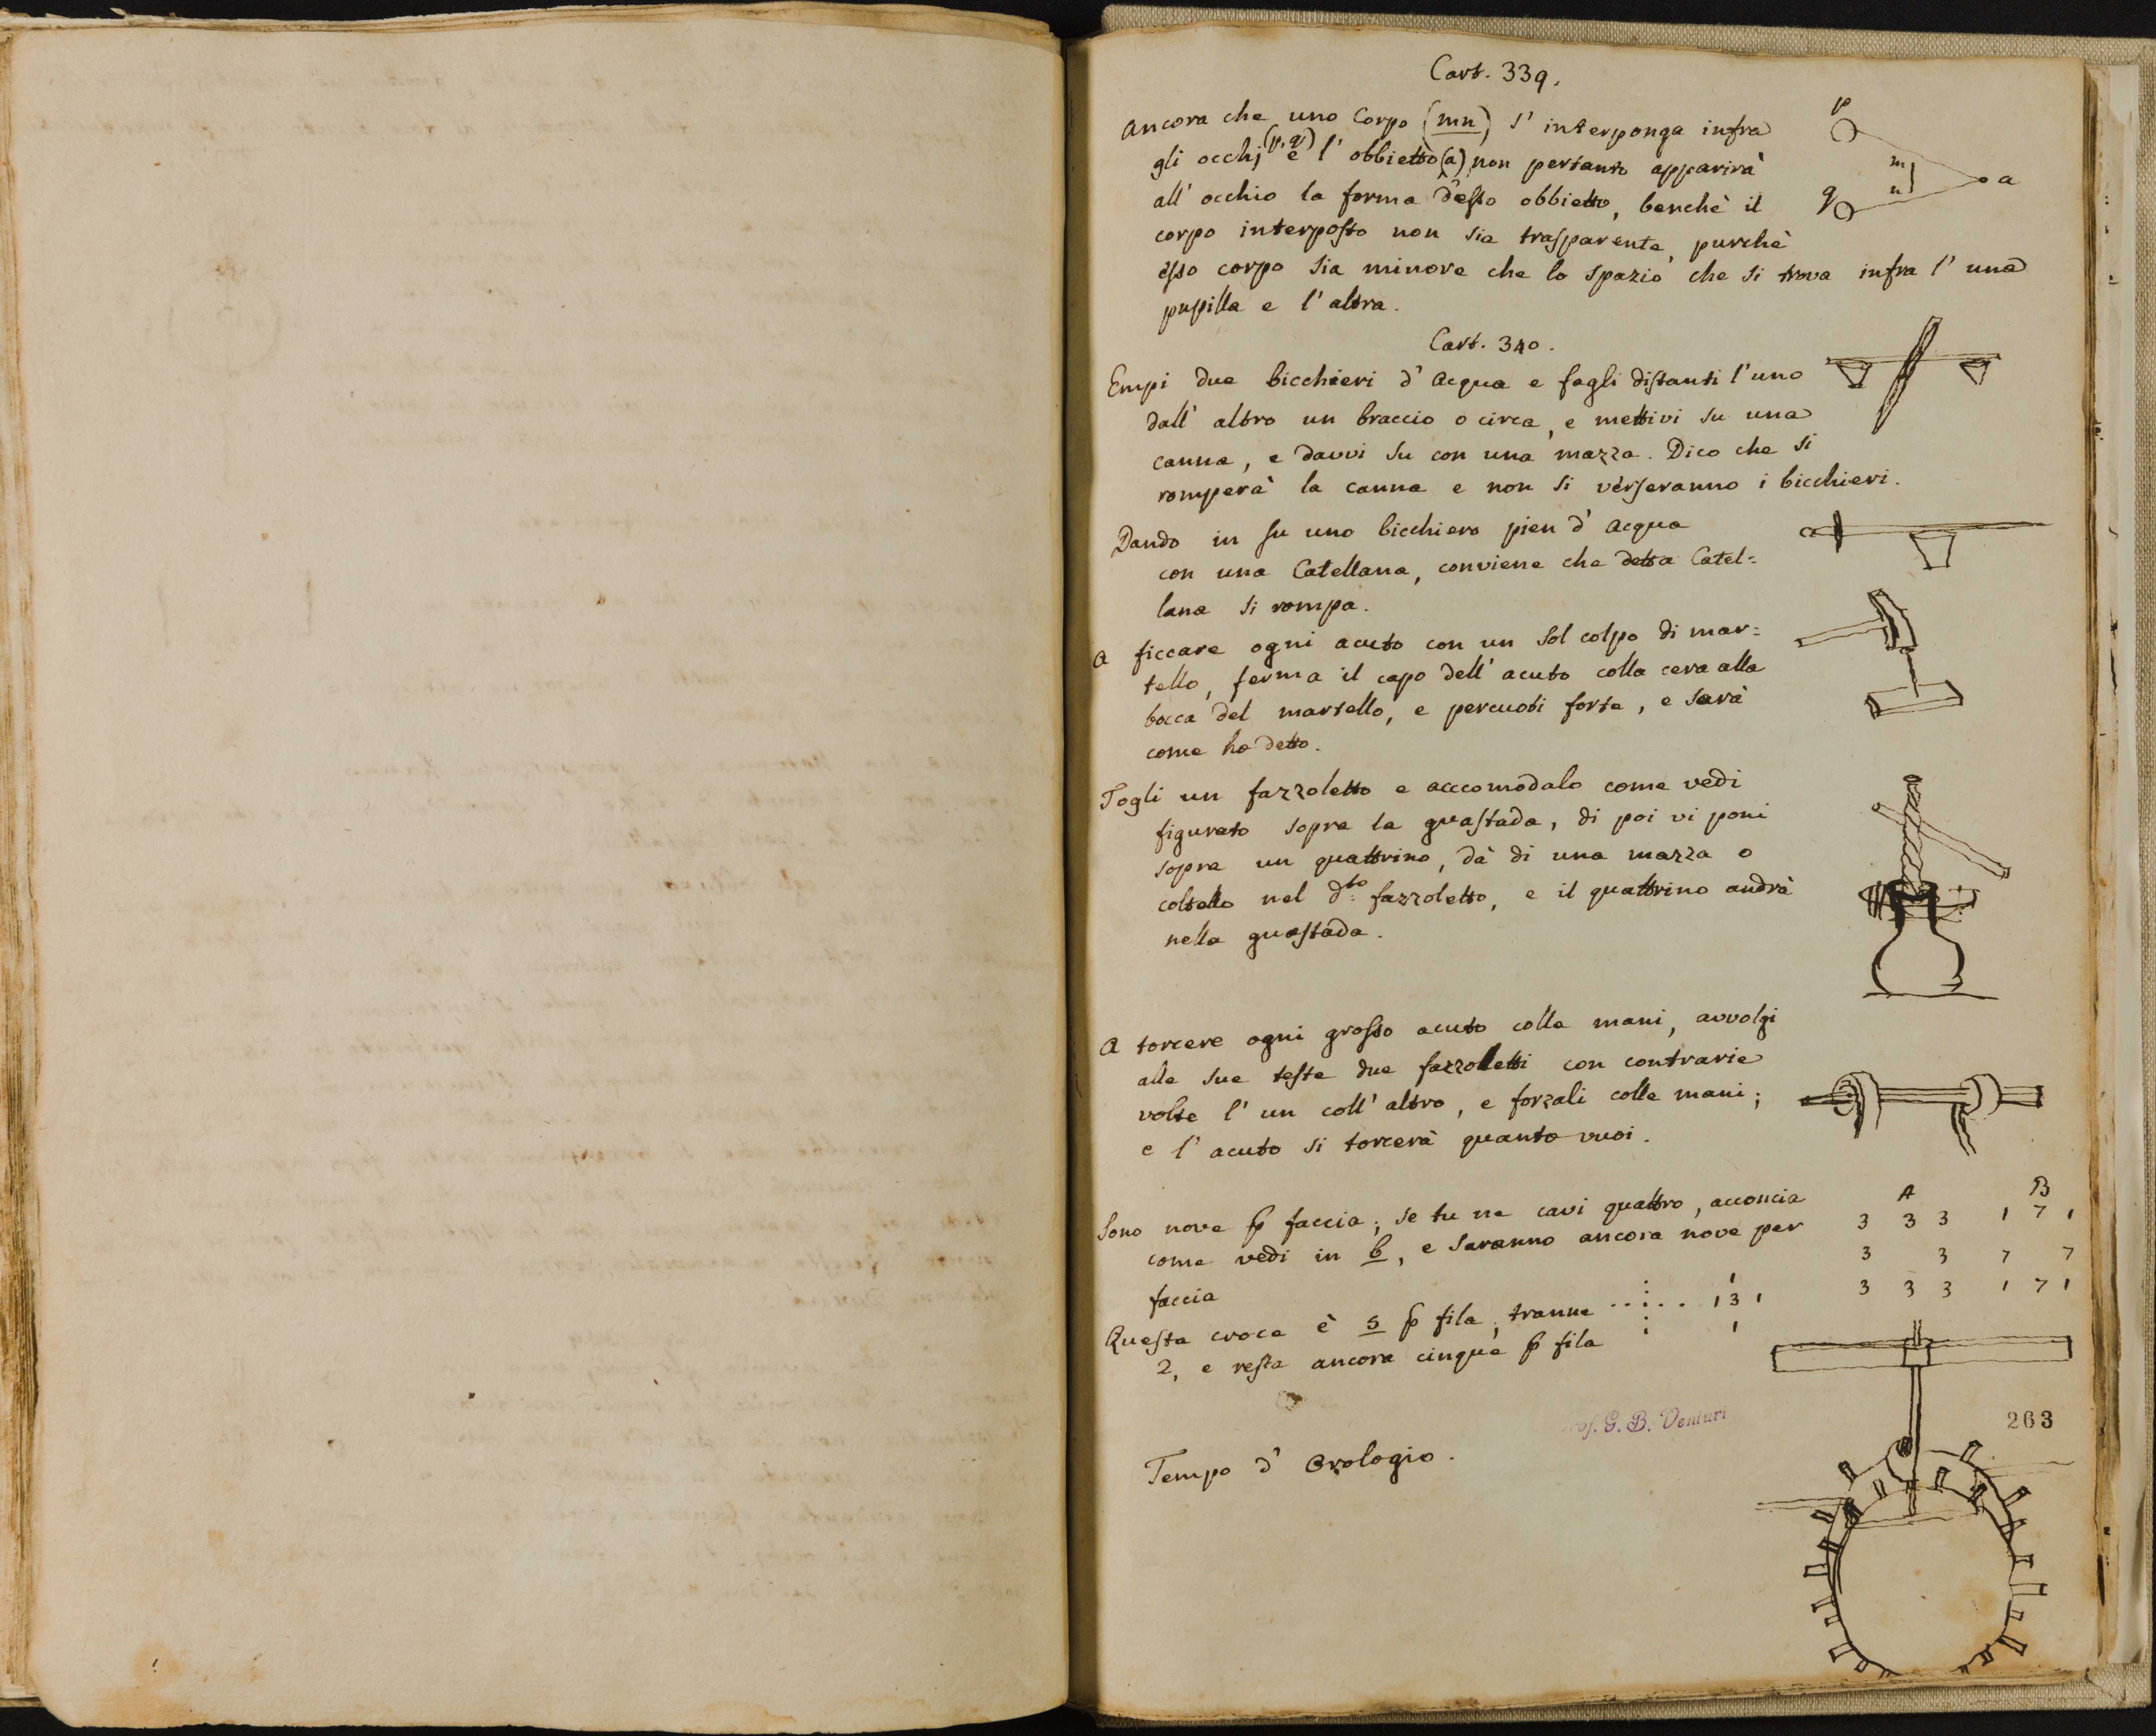 Cart. 339.
Ancora che uno Corpo (mn) s' interponga infra
gli occhj (p, q) e l' obbietto (a) non pertanto apparirà
all' occhio la forma d'esso obbietto, benchè il
corpo interposto non sia trasparente, purchè
esso corpo sia minore che lo spazio che si trova infra l' una
pupilla e l' altra.
p
m
n
a
q
Cart. 340.
Empi due bicchieri d' acqua e fagli distanti l' uno
dall' altro un braccio o circa, e mettivi su una
canna, e davvi su con una mazza. Dico che si
romperà la canna e non si verseranno i bicchieri.
Dando in su uno bicchiero pien d' acqua
con una Catellana, conviene che detta Catel=
lana si rompa.
A ficcare ogni acuto con un sol colpo di mar=
tello, ferma il capo dell' acuto colla cera alla
bocca del martello, e percuoti forte, e sarà
come ho detto.
Togli un fazzoletto e acccomodalo come vedi
figurato sopra la guastada, di poi vi poni
sopra un quattrino, dà di una mazza o
coltello nel d.to fazzoletto, e il quattrino andrà
nella guastada.
A torcere ogni grosso acuto colle mani, avvolgi
alle sue teste due fazzoletti con contrarie
volte l' un coll' altro, e forzali colle mani;
e l' acuto si torcerà quanto vuoi.
Sono nove p faccia; se tu ne cavi quattro, acconcia
come vedi in b, e saranno ancora nove per
faccia
A B
3 3 3 1 7 1
3 3 7 7
3 3 3 1 7 1
Questa croce è 5 p fila, tranne
2, e resta ancora cinque p fila
1
1 3 1
1
1
Tempo d' Orologio.
Prof. G. B. Venturi
263